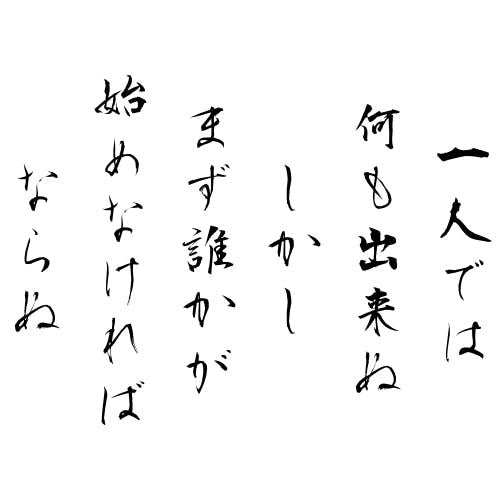 一人では
何も出来ぬ
しかし
まず誰かが
始めなければ
ならぬ